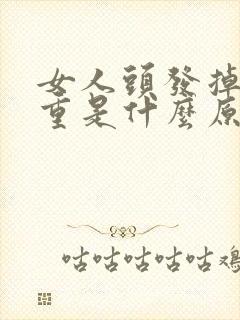 女人頭發掉
重是什麼原
咕咕咕咕咕鸡